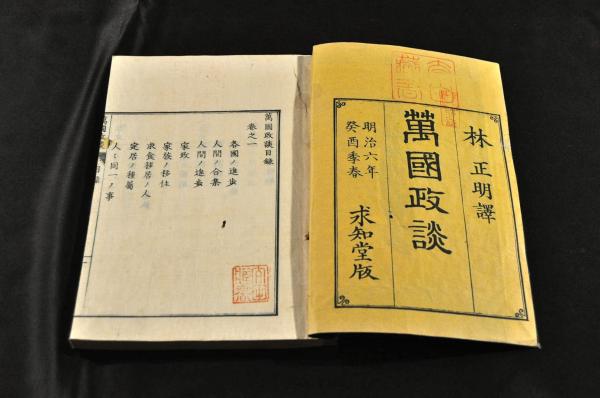 林正明譯
萬國政談
明治六年
癸酉季春
求知堂版
萬國政談目録
卷之一
各國ノ進歩
人間ノ合集
人間ノ進歩
家政
家族ノ移住
求食移居ノ人
定居ノ種屬
人ニ同一ノ事